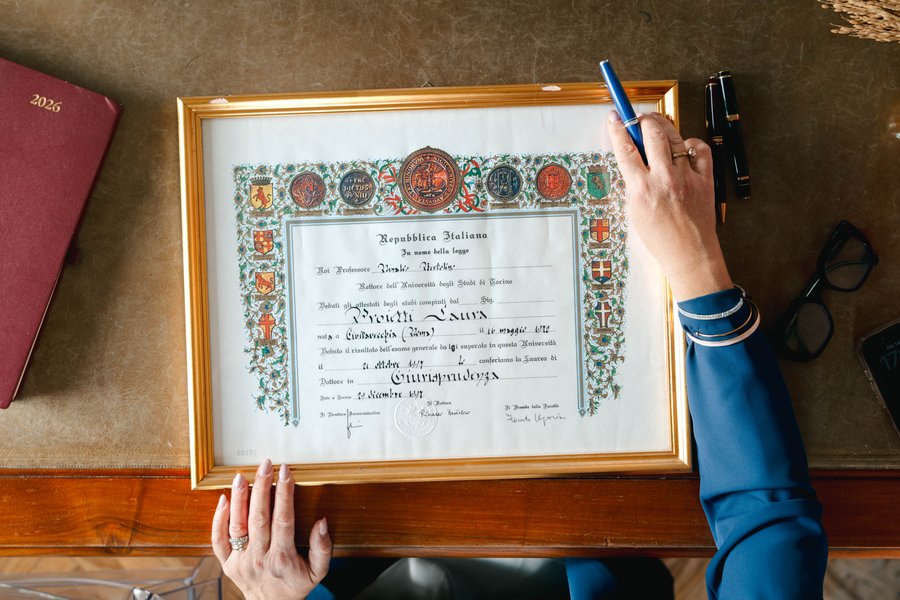 2026
Repubblica Italiana
In nome della legge
Noi Professore Rinaldo Bertolino
Rettore dell'Università degli Studi di Torino
Veduti gli attestati degli studi compiuti dal Sig.
Proietti Laura
nata a Civitavecchia (Roma) il 16 maggio
Veduto il risultato dell'esame generale da lei superato in questa Università
il 21 ottobre 1997 Le conferiamo la Laurea di
Dottore in Giurisprudenza
Dato a Torino 29 dicembre 1997
Il Direttore Amministrativo
Il Rettore
Il Preside della Facoltà
Rinaldo Bertolino